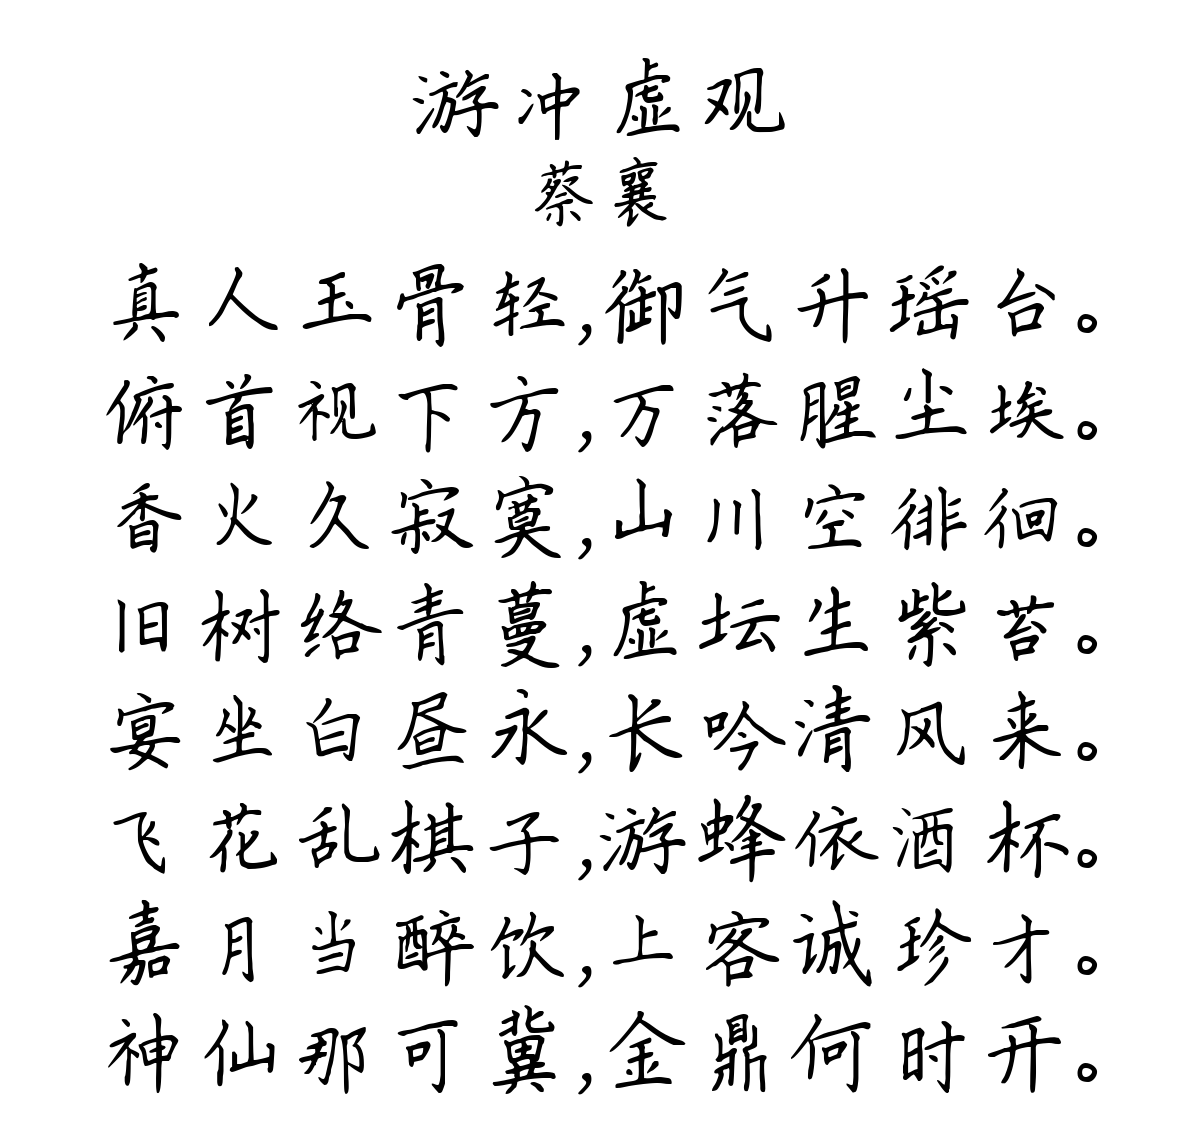 游冲虚观
蔡襄
真人玉骨轻,御气升瑶台。
俯首视下方,万落腥尘埃。
香火久寂寞,山川空徘徊。
旧树络青蔓,虚坛生紫苔。
宴坐白昼永,长吟清风来。
飞花乱棋子,游蜂依酒杯。
嘉月当醉饮,上客诚珍才。
神仙那可冀,金鼎何时开。